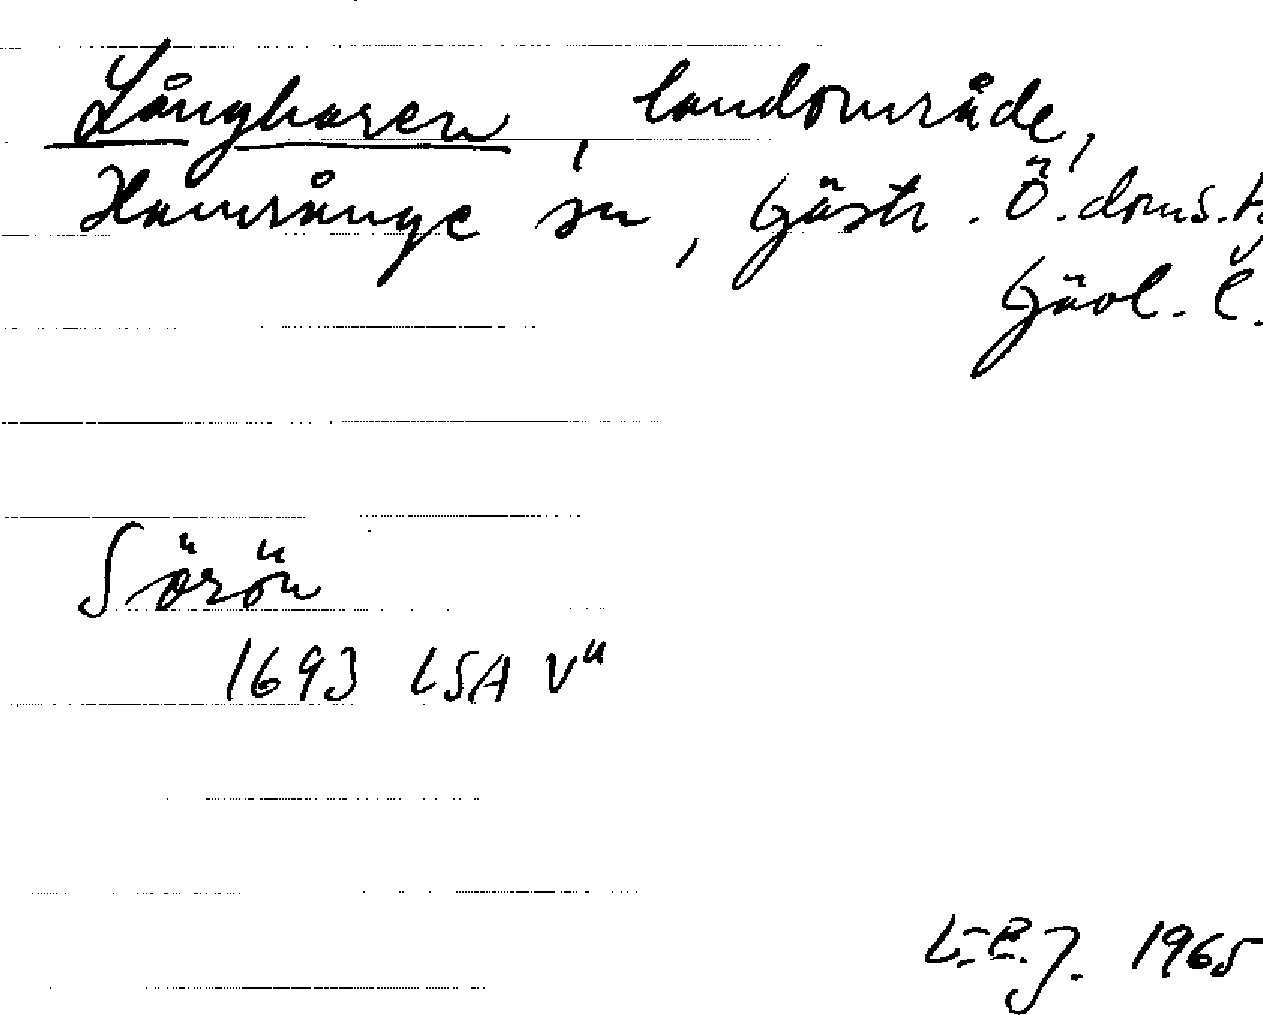 Långharen, landområde,
Hamrånge sn, Gästr. Ö. doms.
Gävl. l.
Sörön
1693 LSA V"
L.E.J. 1965